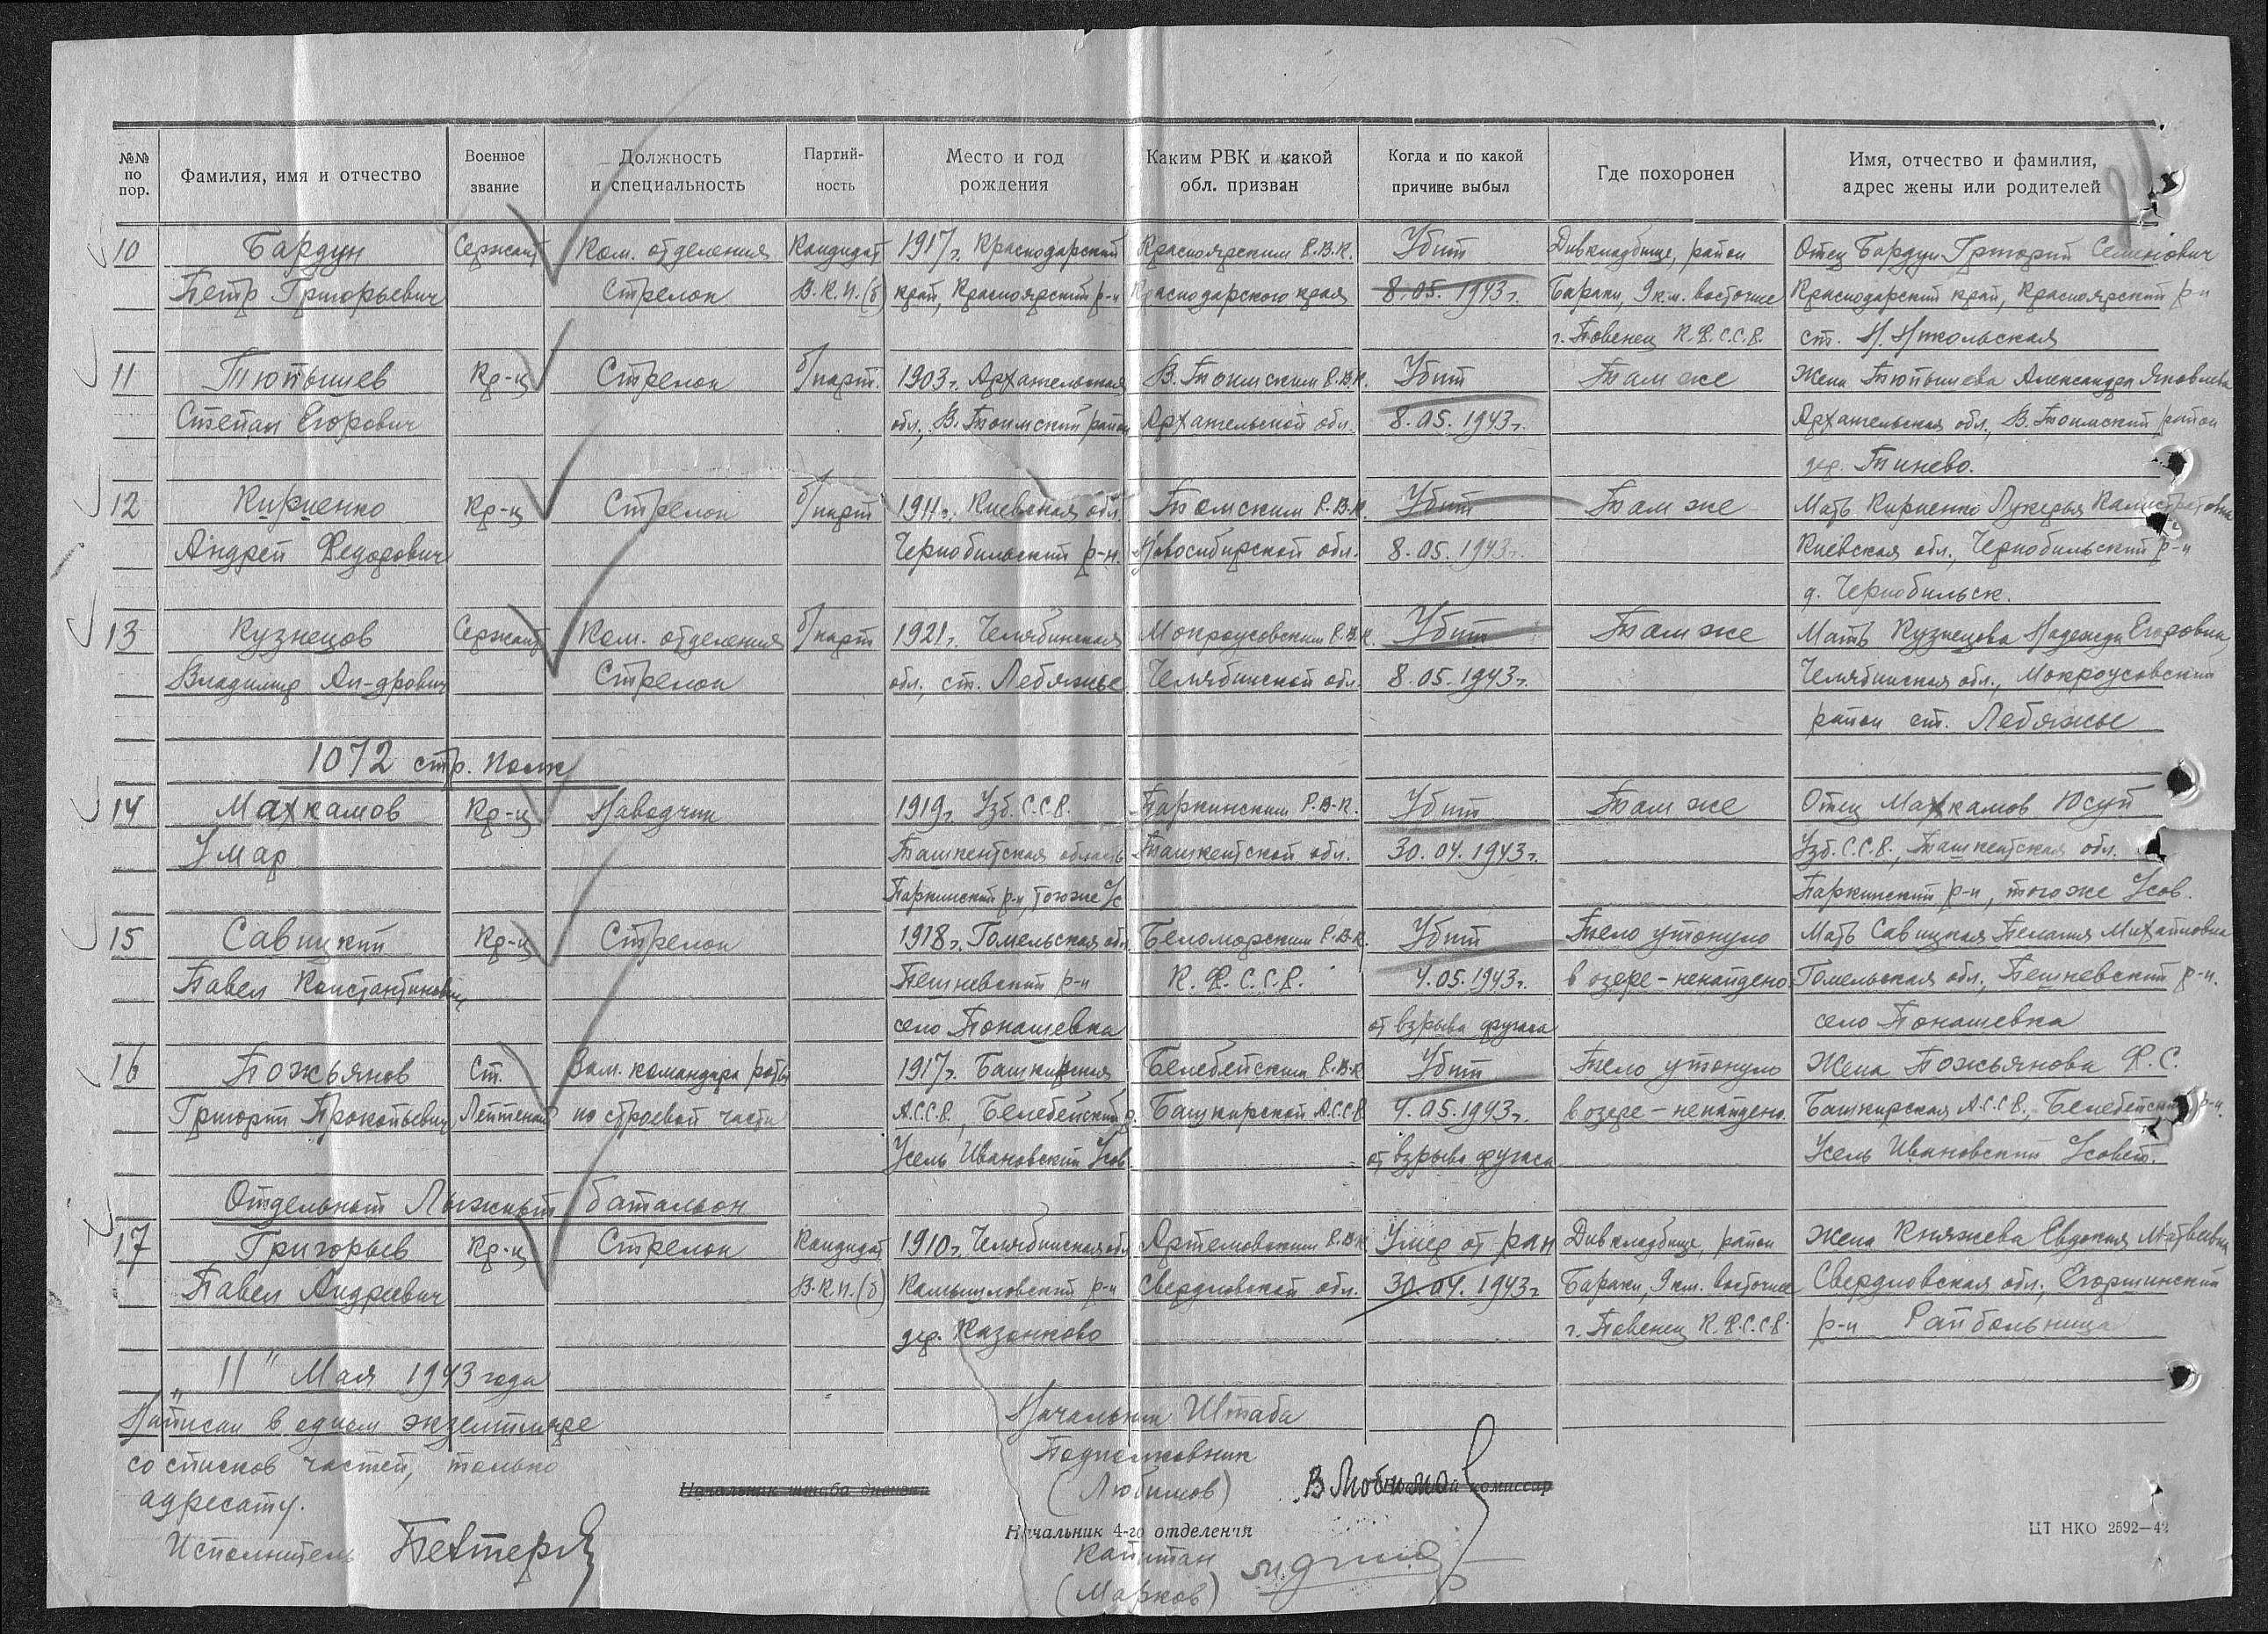 №№ по пор. | Фамилия, имя и отчество | Военное звание | Должность и специальность | Партий-ность | Место и год рождения | Каким РВК и какой обл. призван | Когда и по какой причине выбыл | Где похоронен | Имя, отчество и фамилия, адрес жены или родителей
10 | Бардун | Сержант | Ком. отделения | Кандидат | 1917г. Краснодарский | Красноярским Р.В.К. | Убит | Дивкладбище, район | Отец Бардун Григорий Семенович
Петр Григорьевич | Стрелок | В.К.П.(б) | край, Красноярский р-н | Краснодарского края | 8.05.1943г. | Бараки, 9 км. восточнее | Краснодарский край, Красноярский р-н
г. Повенец К.Ф.С.С.Р. | ст. Н. Никольская
11 | Тюпышев | Кр-ц | Стрелок | б/парт. | 1903г. Архангельская | В. Тоимским Р.В.К. | Убит | Там же | Жена Тюпышева Александра Яковлевна
Степан Егорович | обл., В. Тоимский район | Архангельской обл. | 8.05.1943г. | Архангельская обл., В. Тоимский район
дер. Тинево.
12 | Кириенко | Кр-ц | Стрелок | б/парт | 1911г. Киевская обл. | Томским Р.В.К. | Убит | Там же | Мать Кириенко Лукерья Калистратовна
Андрей Федорович | Чернобильский р-н. | Новосибирской обл. | 8.05.1943г. | Киевская обл., Чернобильский р-н
д. Чернобильск.
13 | Кузнецов | Сержант | Ком. отделения | б/парт | 1921г. Челябинская | Мокроусовским Р.В.К. | Убит | Там же | Мать Кузнецова Надежда Егоровна,
Владимир Ан-дрович | Стрелок | обл., ст. Лебяжье | Челябинской обл. | 8.05.1943г. | Челябинская обл., Мокроусовский
район ст. Лебяжье
1072 стр. полк
14 | Махкамов | Кр-ц | Наводчик | 1919г. Узб.С.С.Р. | Паркинским Р.В.К. | Убит | Там же | Отец Махкамов Юсуп
Умар | Ташкентская область | Ташкентской обл. | 30.04.1943г. | Узб.С.С.Р., Ташкентская обл.
Паркинский р-н, тогоже с/с | Паркинский р-н, того же с/сов.
15 | Савицкий | Кр-ц | Стрелок | 1918г. Гомельская обл. | Беломорским Р.В.К. | Убит | Тело утонуло | Мать Савицкая Пелагия Михайловна
Павел Константинович | Пешневский р-н | К.Ф.С.С.Р. | 4.05.1943г. | в озере – ненайдено | Гомельская обл., Пешневский р-н.
село Понашевка | от взрыва фугаса | село Понашевка
16 | Пожьянов | Ст. | Зам. командира роты | 1917г. Башкирская | Белебейским Р.В.К. | Убит | Тело утонуло | Жена Пожьянова Ф.С.
Григорий Прокопьевич | Лейтенант | по строевой части | А.С.С.Р., Белебейский р. | Башкирской А.С.С.Р. | 4.05.1943г. | в озере – ненайдено. | Башкирская А.С.С.Р., Белебейский р-н.
Усень Ивановский с/сов | от взрыва фугаса | Усень Ивановский с/совет.
Отдельный Лыжный батальон
17 | Григорьев | Кр-ц | Стрелок | Кандидат | 1910г. Челябинская обл. | Артемовским Р.В.К. | Умер от ран | Дивкладбище, район | Жена Княжева Евдокия Матвеевна
Павел Андреевич | В.К.П.(б) | Камышловский р-н | Свердловской обл. | 30.04.1943г | Бараки, 9 км. восточнее | Свердловская обл., Егоршинский
дер. Казанково | г. Повенец К.Ф.С.С.Р. | р-н Райбольница
„11" Мая 1943 года
Написан в одном экземпляре
со списков частей, только
адресату.
Исполнитель
Начальник Штаба
Подполковник
(Любимов)
В Любимов
Начальник штаба дивизии
Военный комиссар
Начальник 4-го отделения
Капитан
(Марков)
ЦТ НКО 2592—42